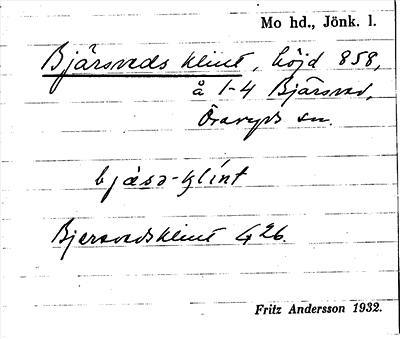 Mo hd., Jönk. l.
Bjärsveds klint, höjd 858,
å 1-4 Bjärsved,
Öraryds sn.
bjæsə-klínt
Bjersvedsklint G 26.
Fritz Andersson 1932.